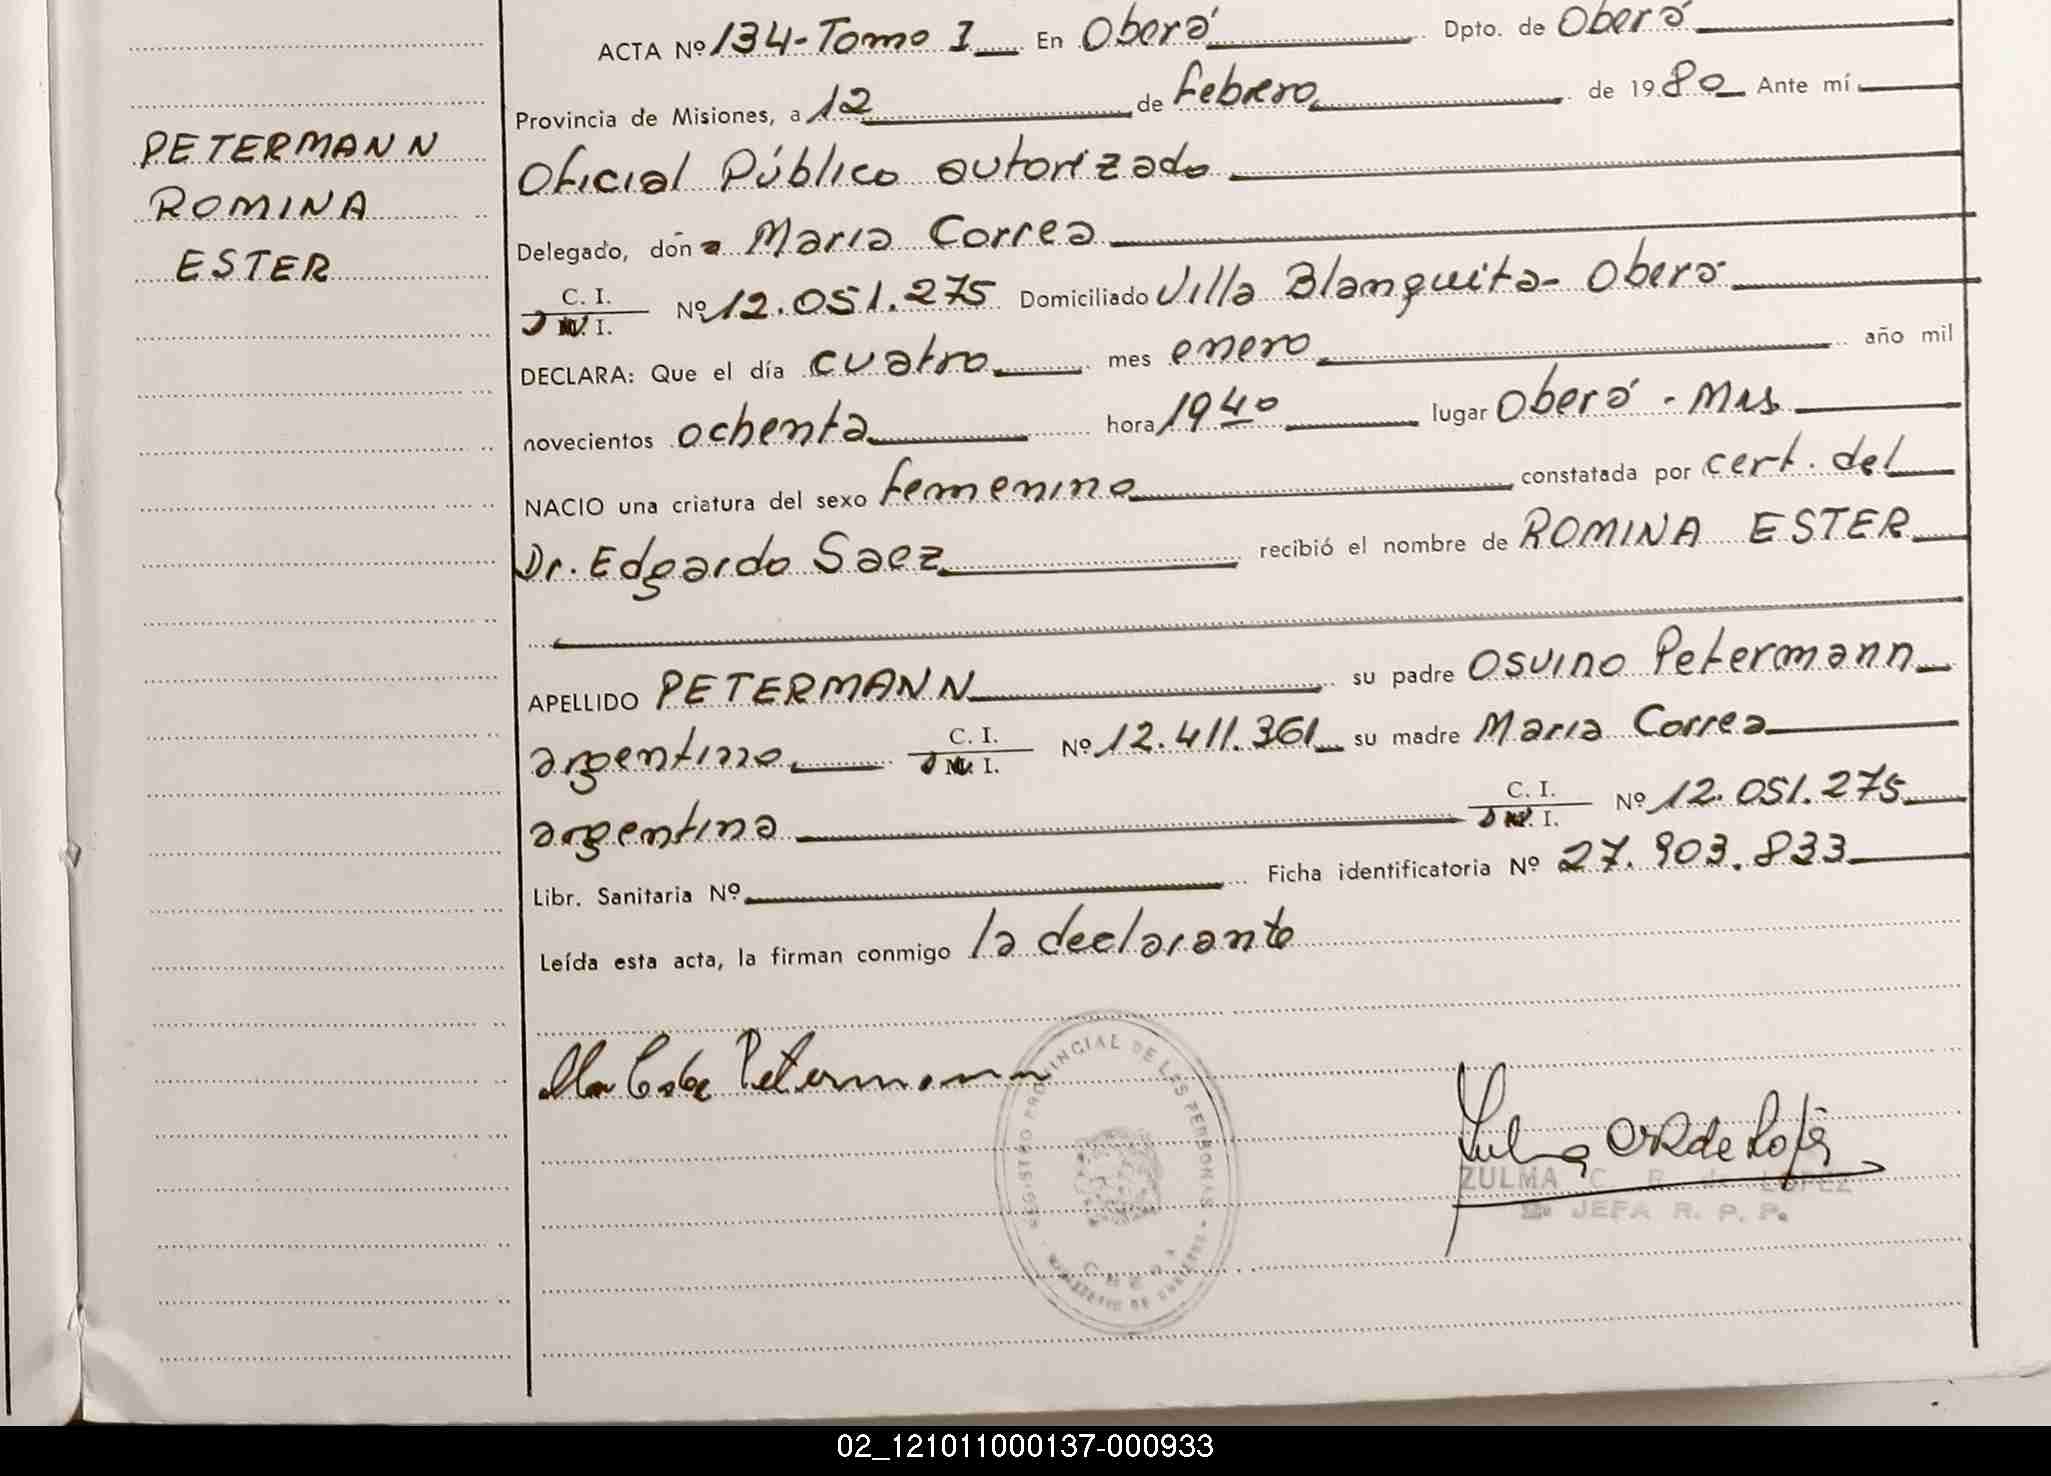 ACTA Nº 134-Tomo I En Oberá Dpto. de Oberá
Provincia de Misiones, a 12 de febrero de 1980 Ante mí
PETERMANN
ROMINA
ESTER
Oficial Público autorizado
Delegado, doña María Correa
C. I.
D N. I. Nº 12.051.275 Domiciliado Villa Blanquita - Oberá
DECLARA: Que el día cuatro mes enero año mil
novecientos ochenta hora 19 40 lugar Oberá - Mns
NACIO una criatura del sexo femenino constatada por cert. del
Dr. Edgardo Saez recibió el nombre de ROMINA ESTER
APELLIDO PETERMANN su padre Osvino Petermann
argentino C. I. D N. I. Nº 12.411.361 su madre María Correa
argentina C. I. D N. I. Nº 12.051.275
Libr. Sanitaria Nº Ficha identificatoria Nº 27.903.833
Leída esta acta, la firman conmigo la declarante
Petermann
REGISTRO PROVINCIAL DE LAS PERSONAS
MINISTERIO DE GOBIERNO
ZULMA C. R. de LOPEZ
JEFA R. P. P.
02_121011000137-000933